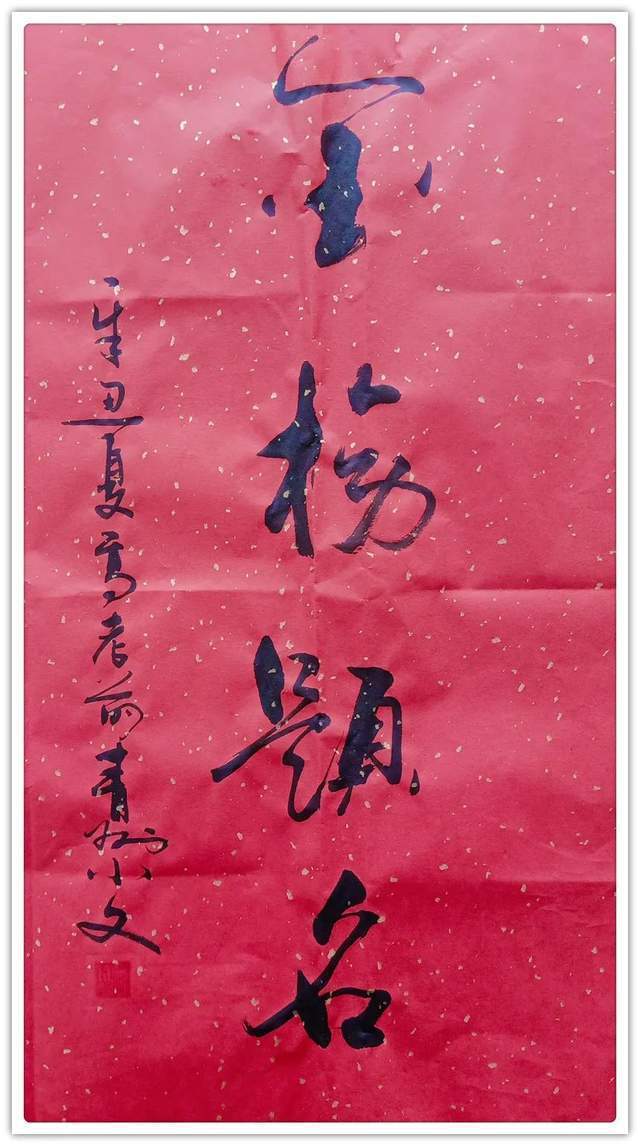 金榜题名
辛丑夏高考前青州小文